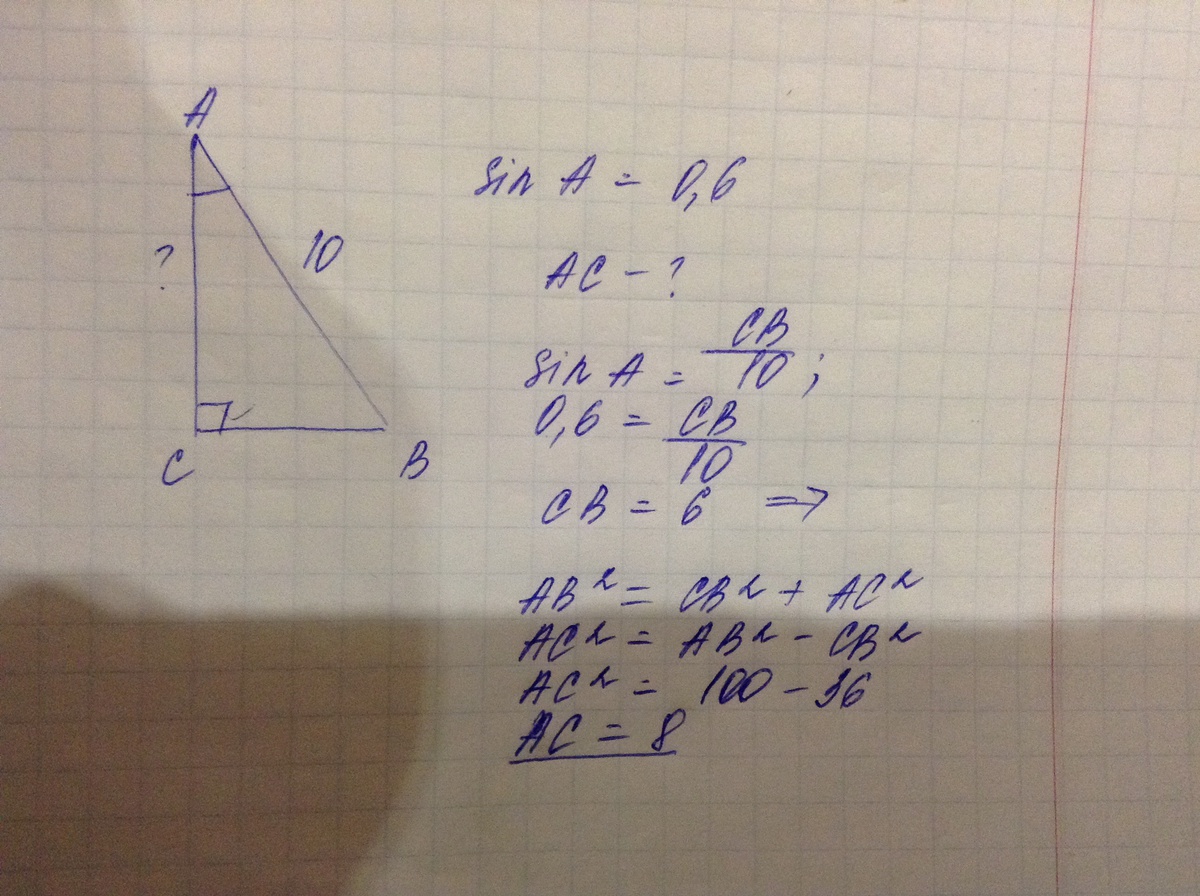 A
?
10
C
B
Sin A = 0,6
AC - ?
Sin A = CB/10 ;
0,6 = CB/10
CB = 6 =>
AB² = CB² + AC²
AC² = AB² - CB²
AC² = 100 - 36
AC = 8